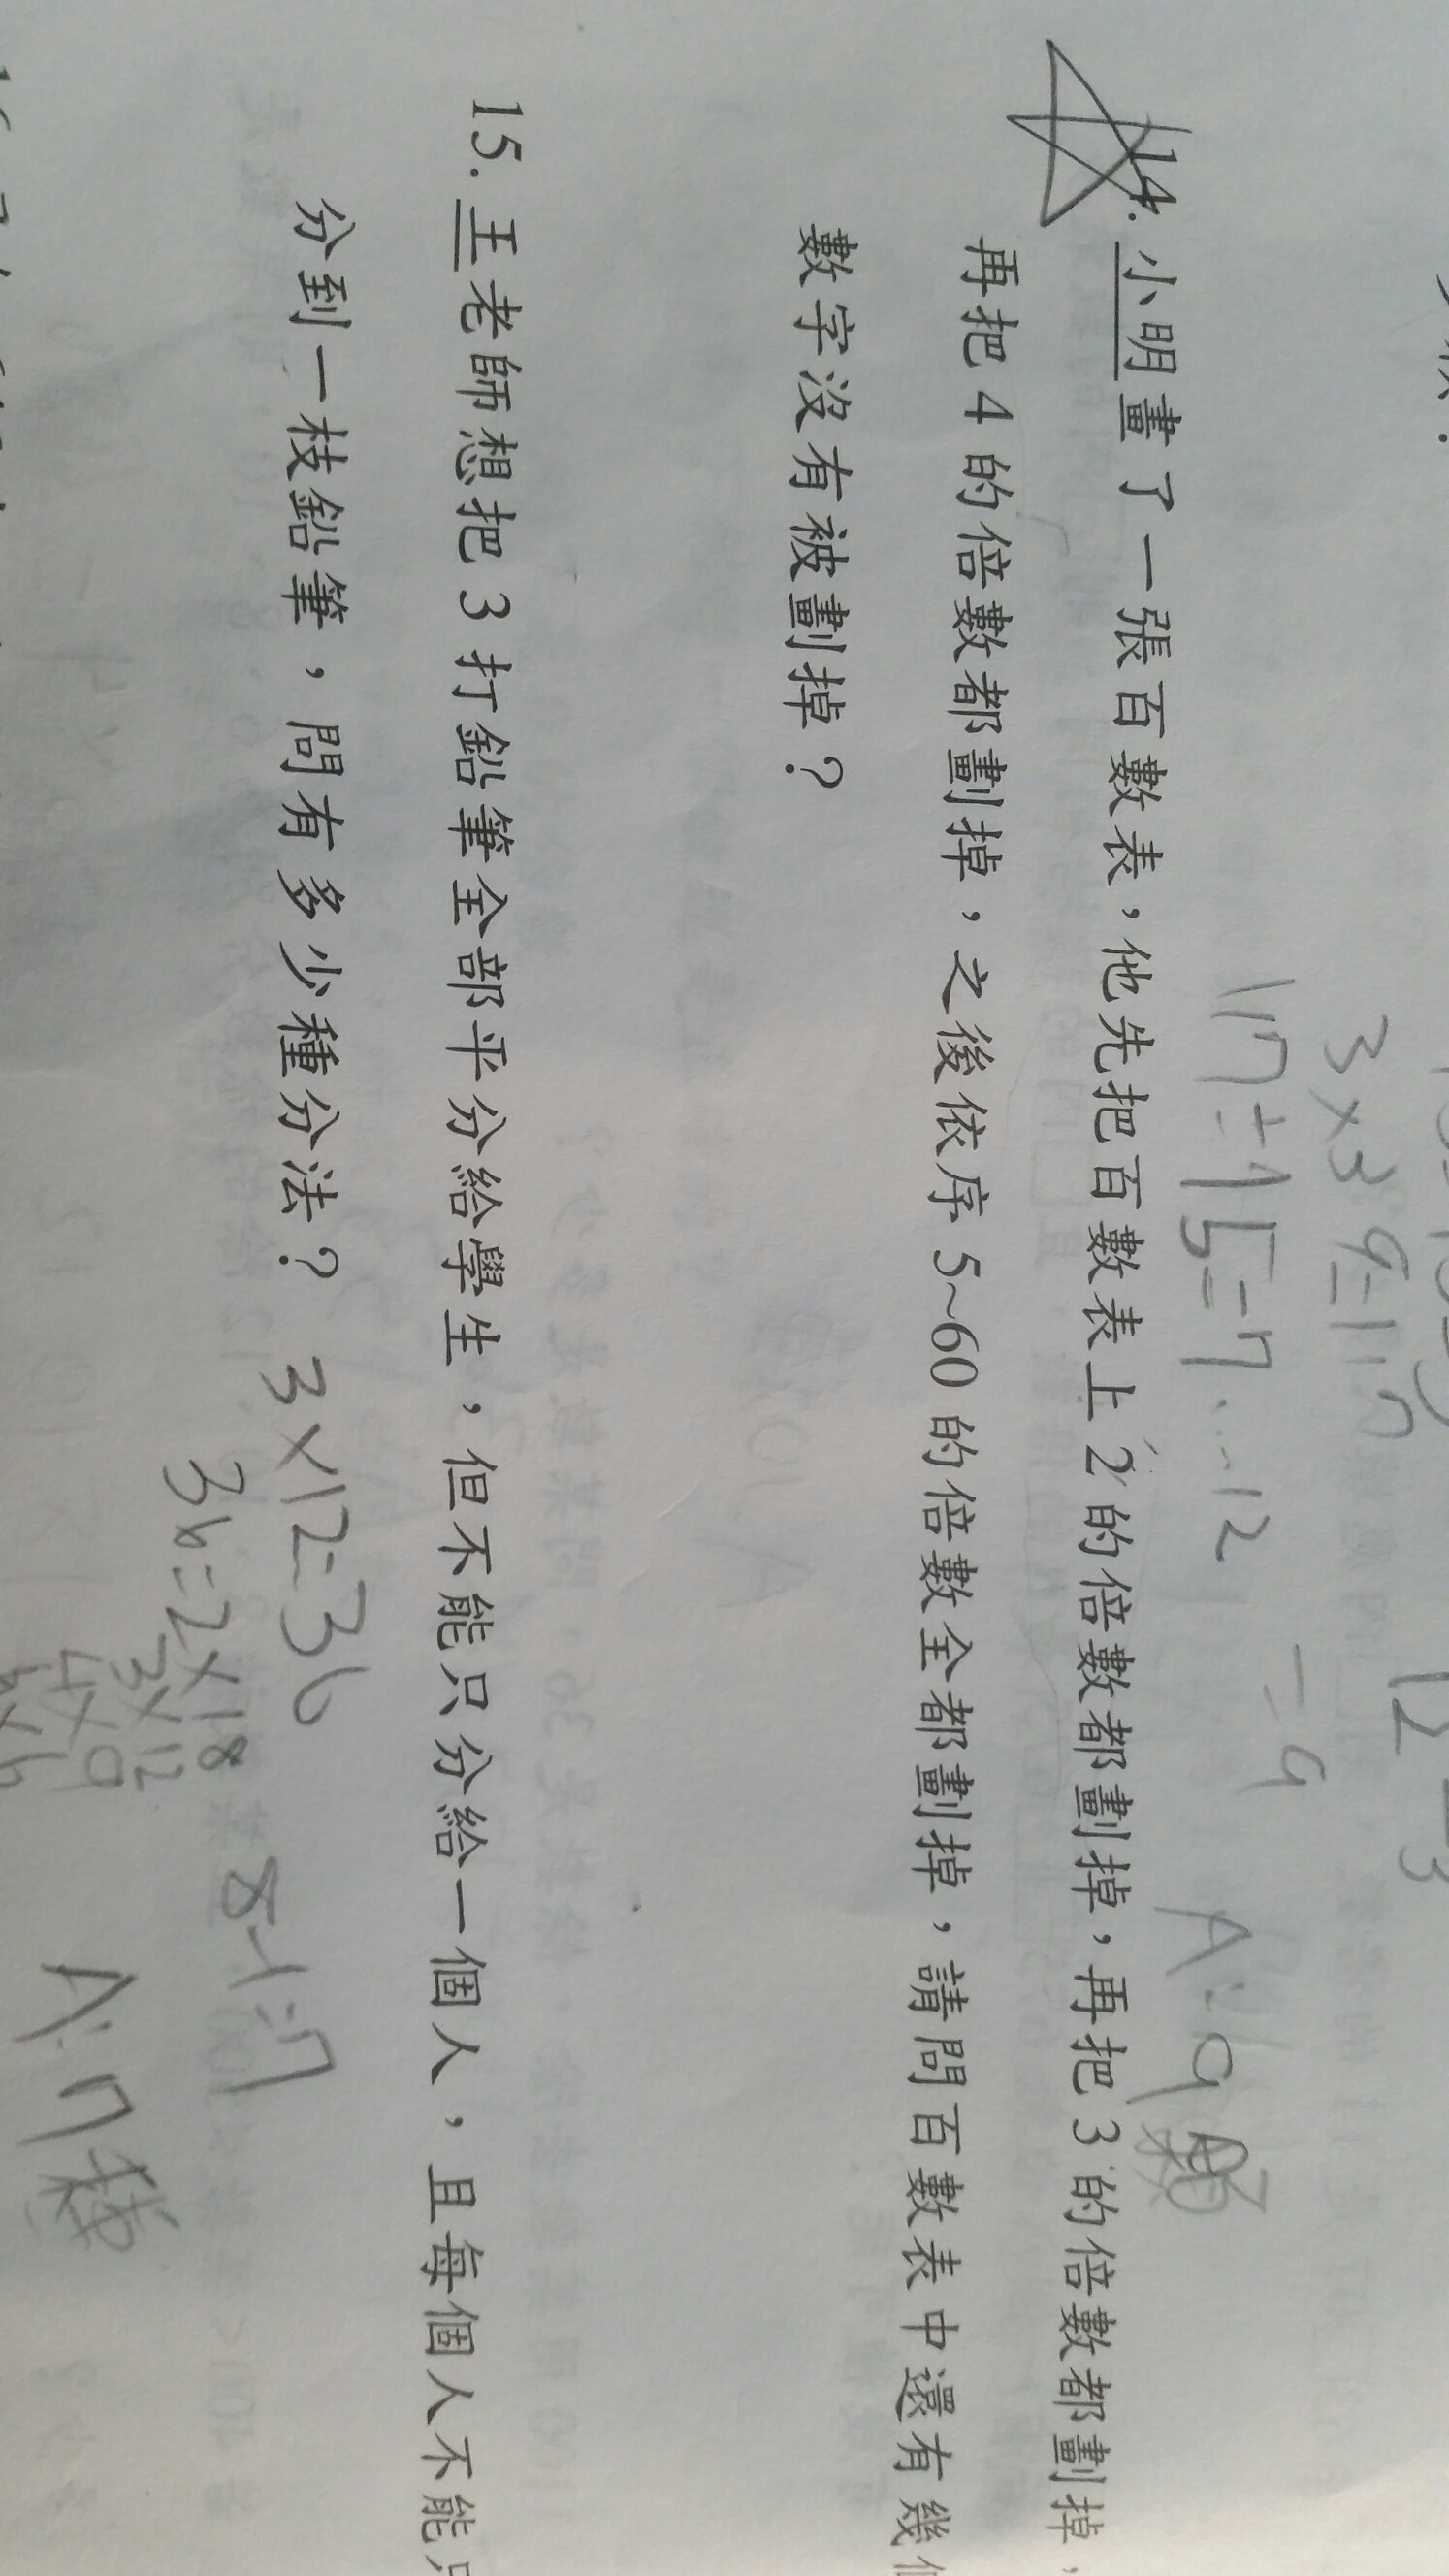 3×39=117
117÷15=7...12
-9
12
3
A:9
14. 小明畫了一張百數表，他先把百數表上 2 的倍數都劃掉，再把 3 的倍數都劃掉，
再把 4 的倍數都劃掉，之後依序 5~60 的倍數全都劃掉，請問百數表中還有幾個
數字沒有被劃掉？
15. 王老師想把 3 打鉛筆全部平分給學生，但不能只分給一個人，且每個人不能只
分到一枝鉛筆，問有多少種分法？ 3×12=36
36=2×18
3×12
4×9
6×6
8-1=7
A:7種